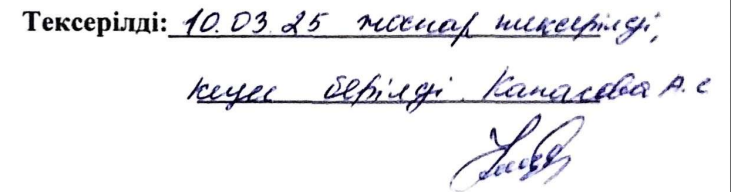 Тексерілді: 10.03.25 жоспар тексерілді,
кеңес берілді. Капасова А.С